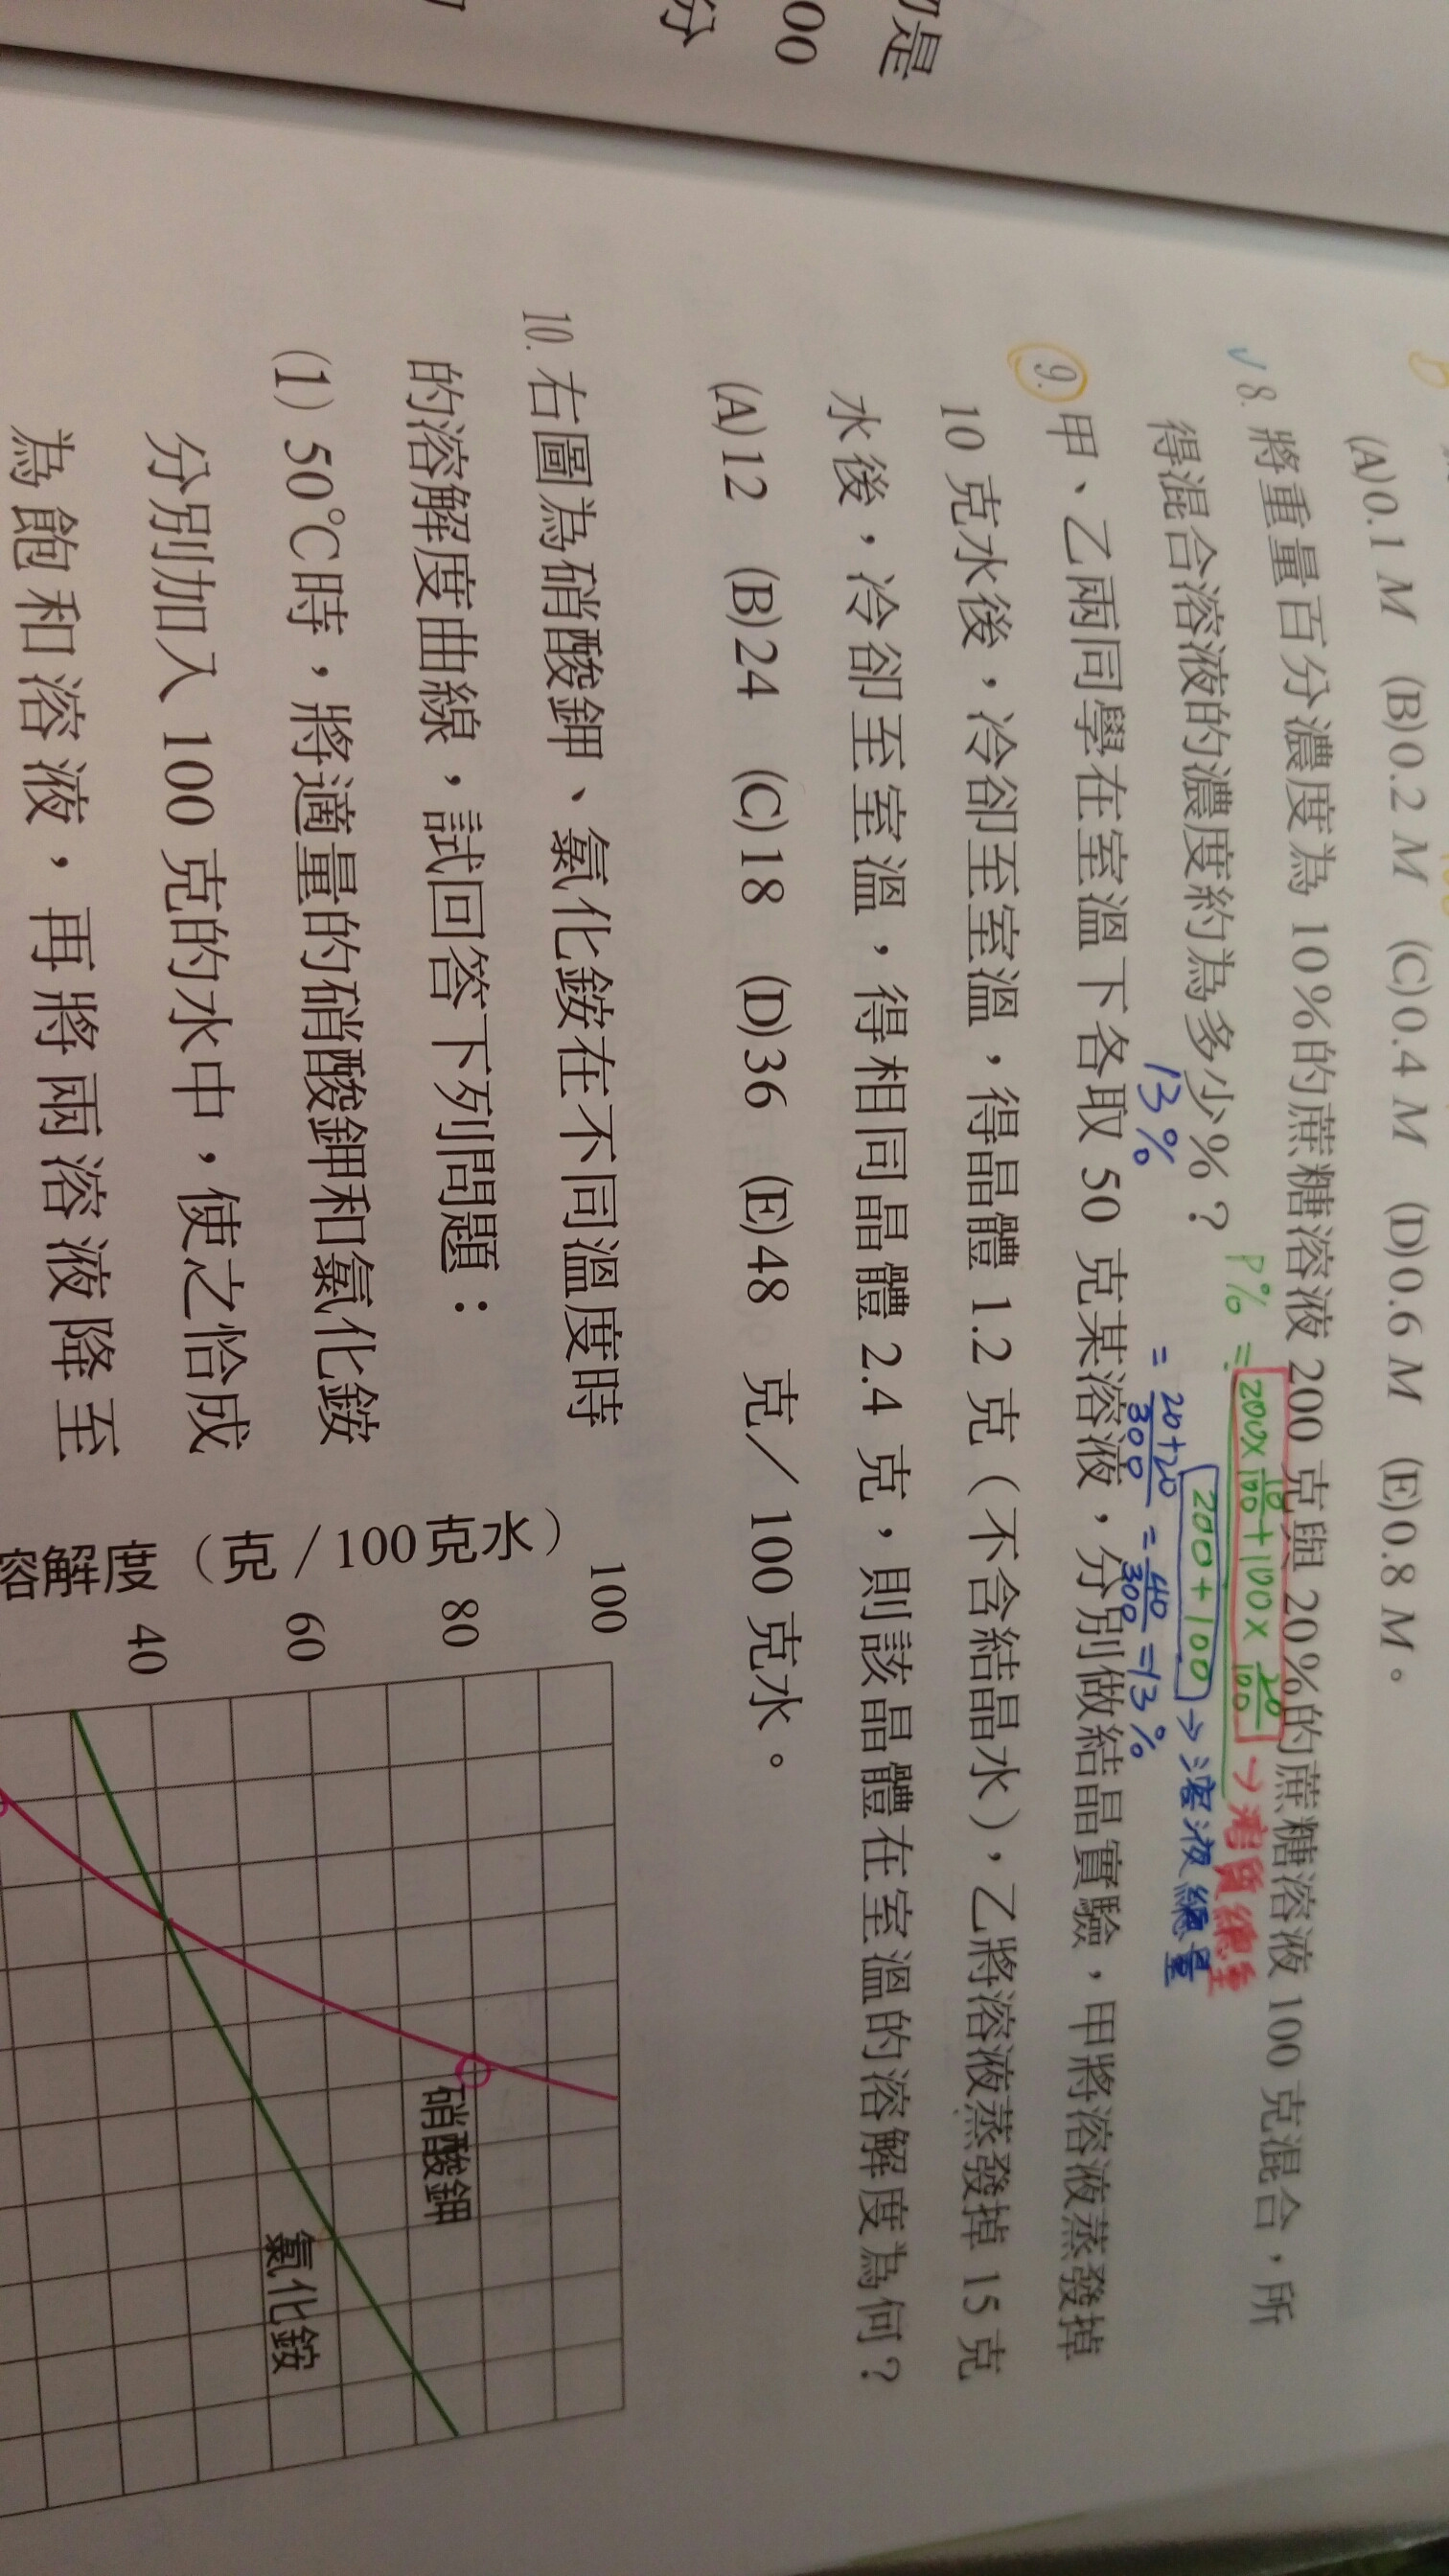 (A)0.1 M (B)0.2 M (C)0.4 M (D)0.6 M (E)0.8 M。
8. 將重量百分濃度為 10%的蔗糖溶液 200 克與 20%的蔗糖溶液 100 克混合,所
得混合溶液的濃度約為多少%?
P% = 200×10/100+100×20/100 → 溶質總重
200+100 → 溶液總重
13%
= 20+20/300 = 40/300 = 13%
9. 甲、乙兩同學在室溫下各取 50 克某溶液,分別做結晶實驗,甲將溶液蒸發掉
10 克水後,冷卻至室溫,得晶體 1.2 克(不含結晶水),乙將溶液蒸發掉 15 克
水後,冷卻至室溫,得相同晶體 2.4 克,則該晶體在室溫的溶解度為何?
(A)12 (B)24 (C)18 (D)36 (E)48 克/100 克水。
10. 右圖為硝酸鉀、氯化銨在不同溫度時
的溶解度曲線,試回答下列問題:
(1) 50℃時,將適量的硝酸鉀和氯化銨
分別加入 100 克的水中,使之恰成
為飽和溶液,再將兩溶液降至
溶解度(克/100克水)
100
80
60
40
硝酸鉀
氯化銨
是
00
分